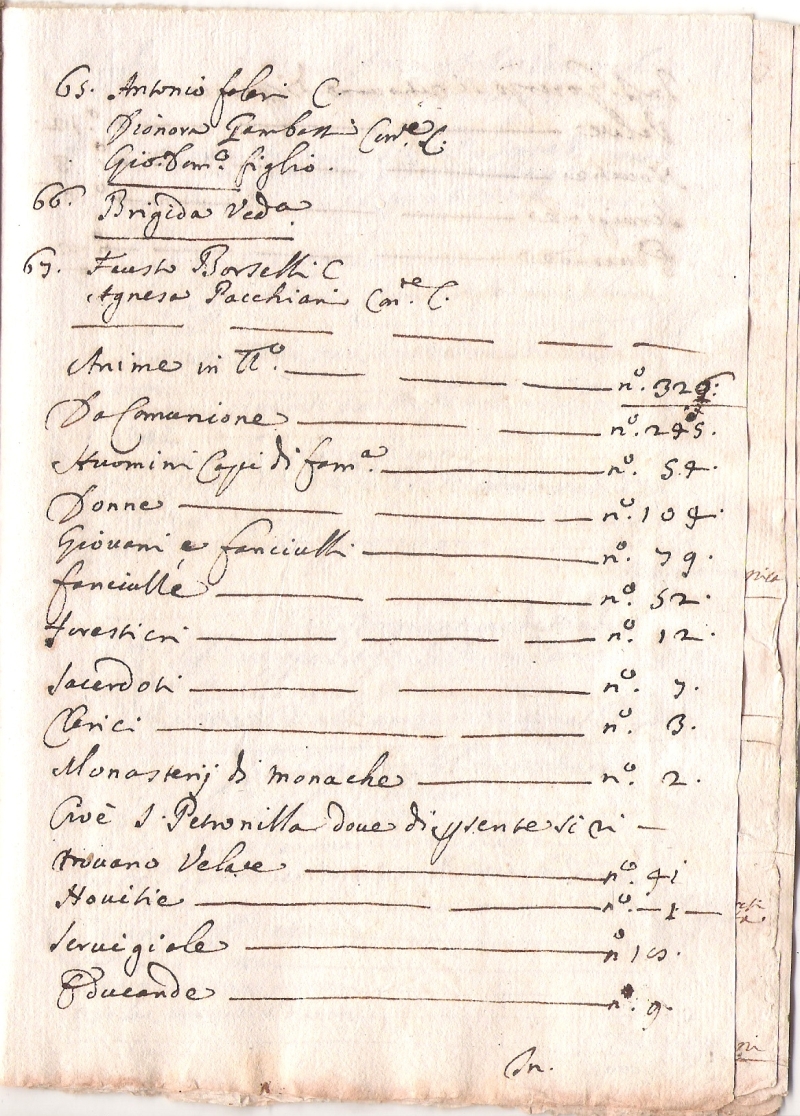 65. Antonio fabri C.
Dionora Gambassi Con.te C.
Gio: Dom.o figlio.
66. Brigida Ved.a
67. Fausto Borselli C
Agnesa Pacchiani Con.te C.
Anime in tt.o n.o 326:
Da Comunione n.o 245.
Huomini Capi di fam.a n.o 54.
Donne n.o 104.
Giovani e fanciulli n.o 79.
fanciulle n.o 52.
forestieri n.o 12.
Sacerdoti n.o 7.
Clerici n.o 3.
Monasterij di monache n.o 2.
Cioè S. Petronilla dove di psente si ri —
trovano Velate n.o 41
Novitie n.o 1
Servigiale n.o 10.
Educande n.o 9.
In.